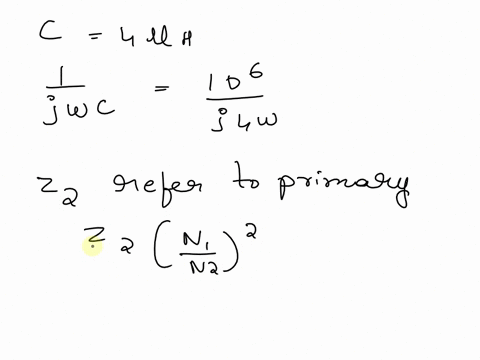 C = 4 µH
1/jωC = 10^6/j4ω
Z2 refer to primary
Z2 (N1/N2)^2